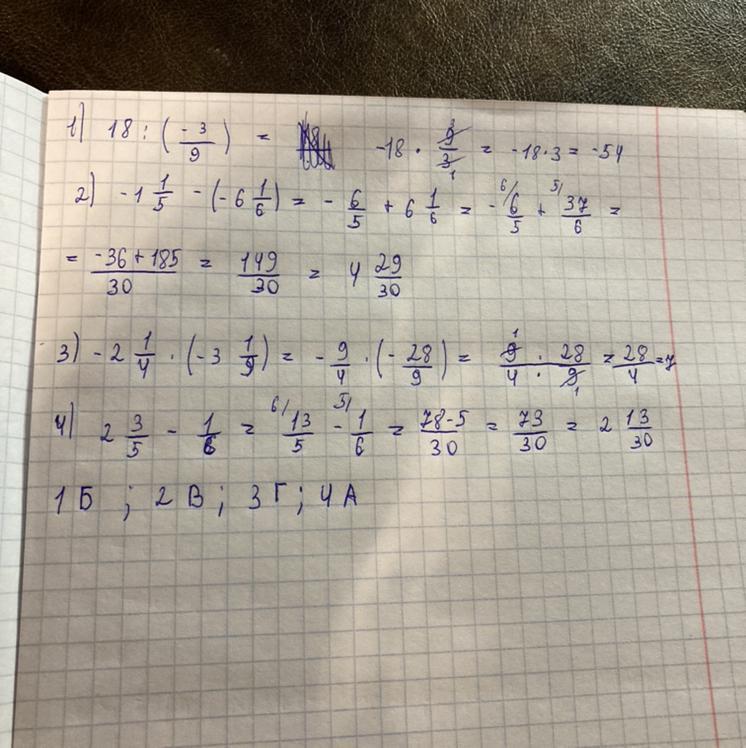 1) 18 : (-3/9) = -18 · 9/3 = -18·3 = -54
2) -1 1/5 - (-6 1/6) = - 6/5 + 6 1/6 = - 6/5 + 37/6 =
= (-36+185)/30 = 149/30 = 4 29/30
3) -2 1/4 · (-3 1/9) = - 9/4 · (- 28/9) = (9 · 28)/(4 · 9) = 28/4 = 7
4) 2 3/5 - 1/6 = 13/5 - 1/6 = (78-5)/30 = 73/30 = 2 13/30
1 Б ; 2 В ; 3 Г ; 4 А